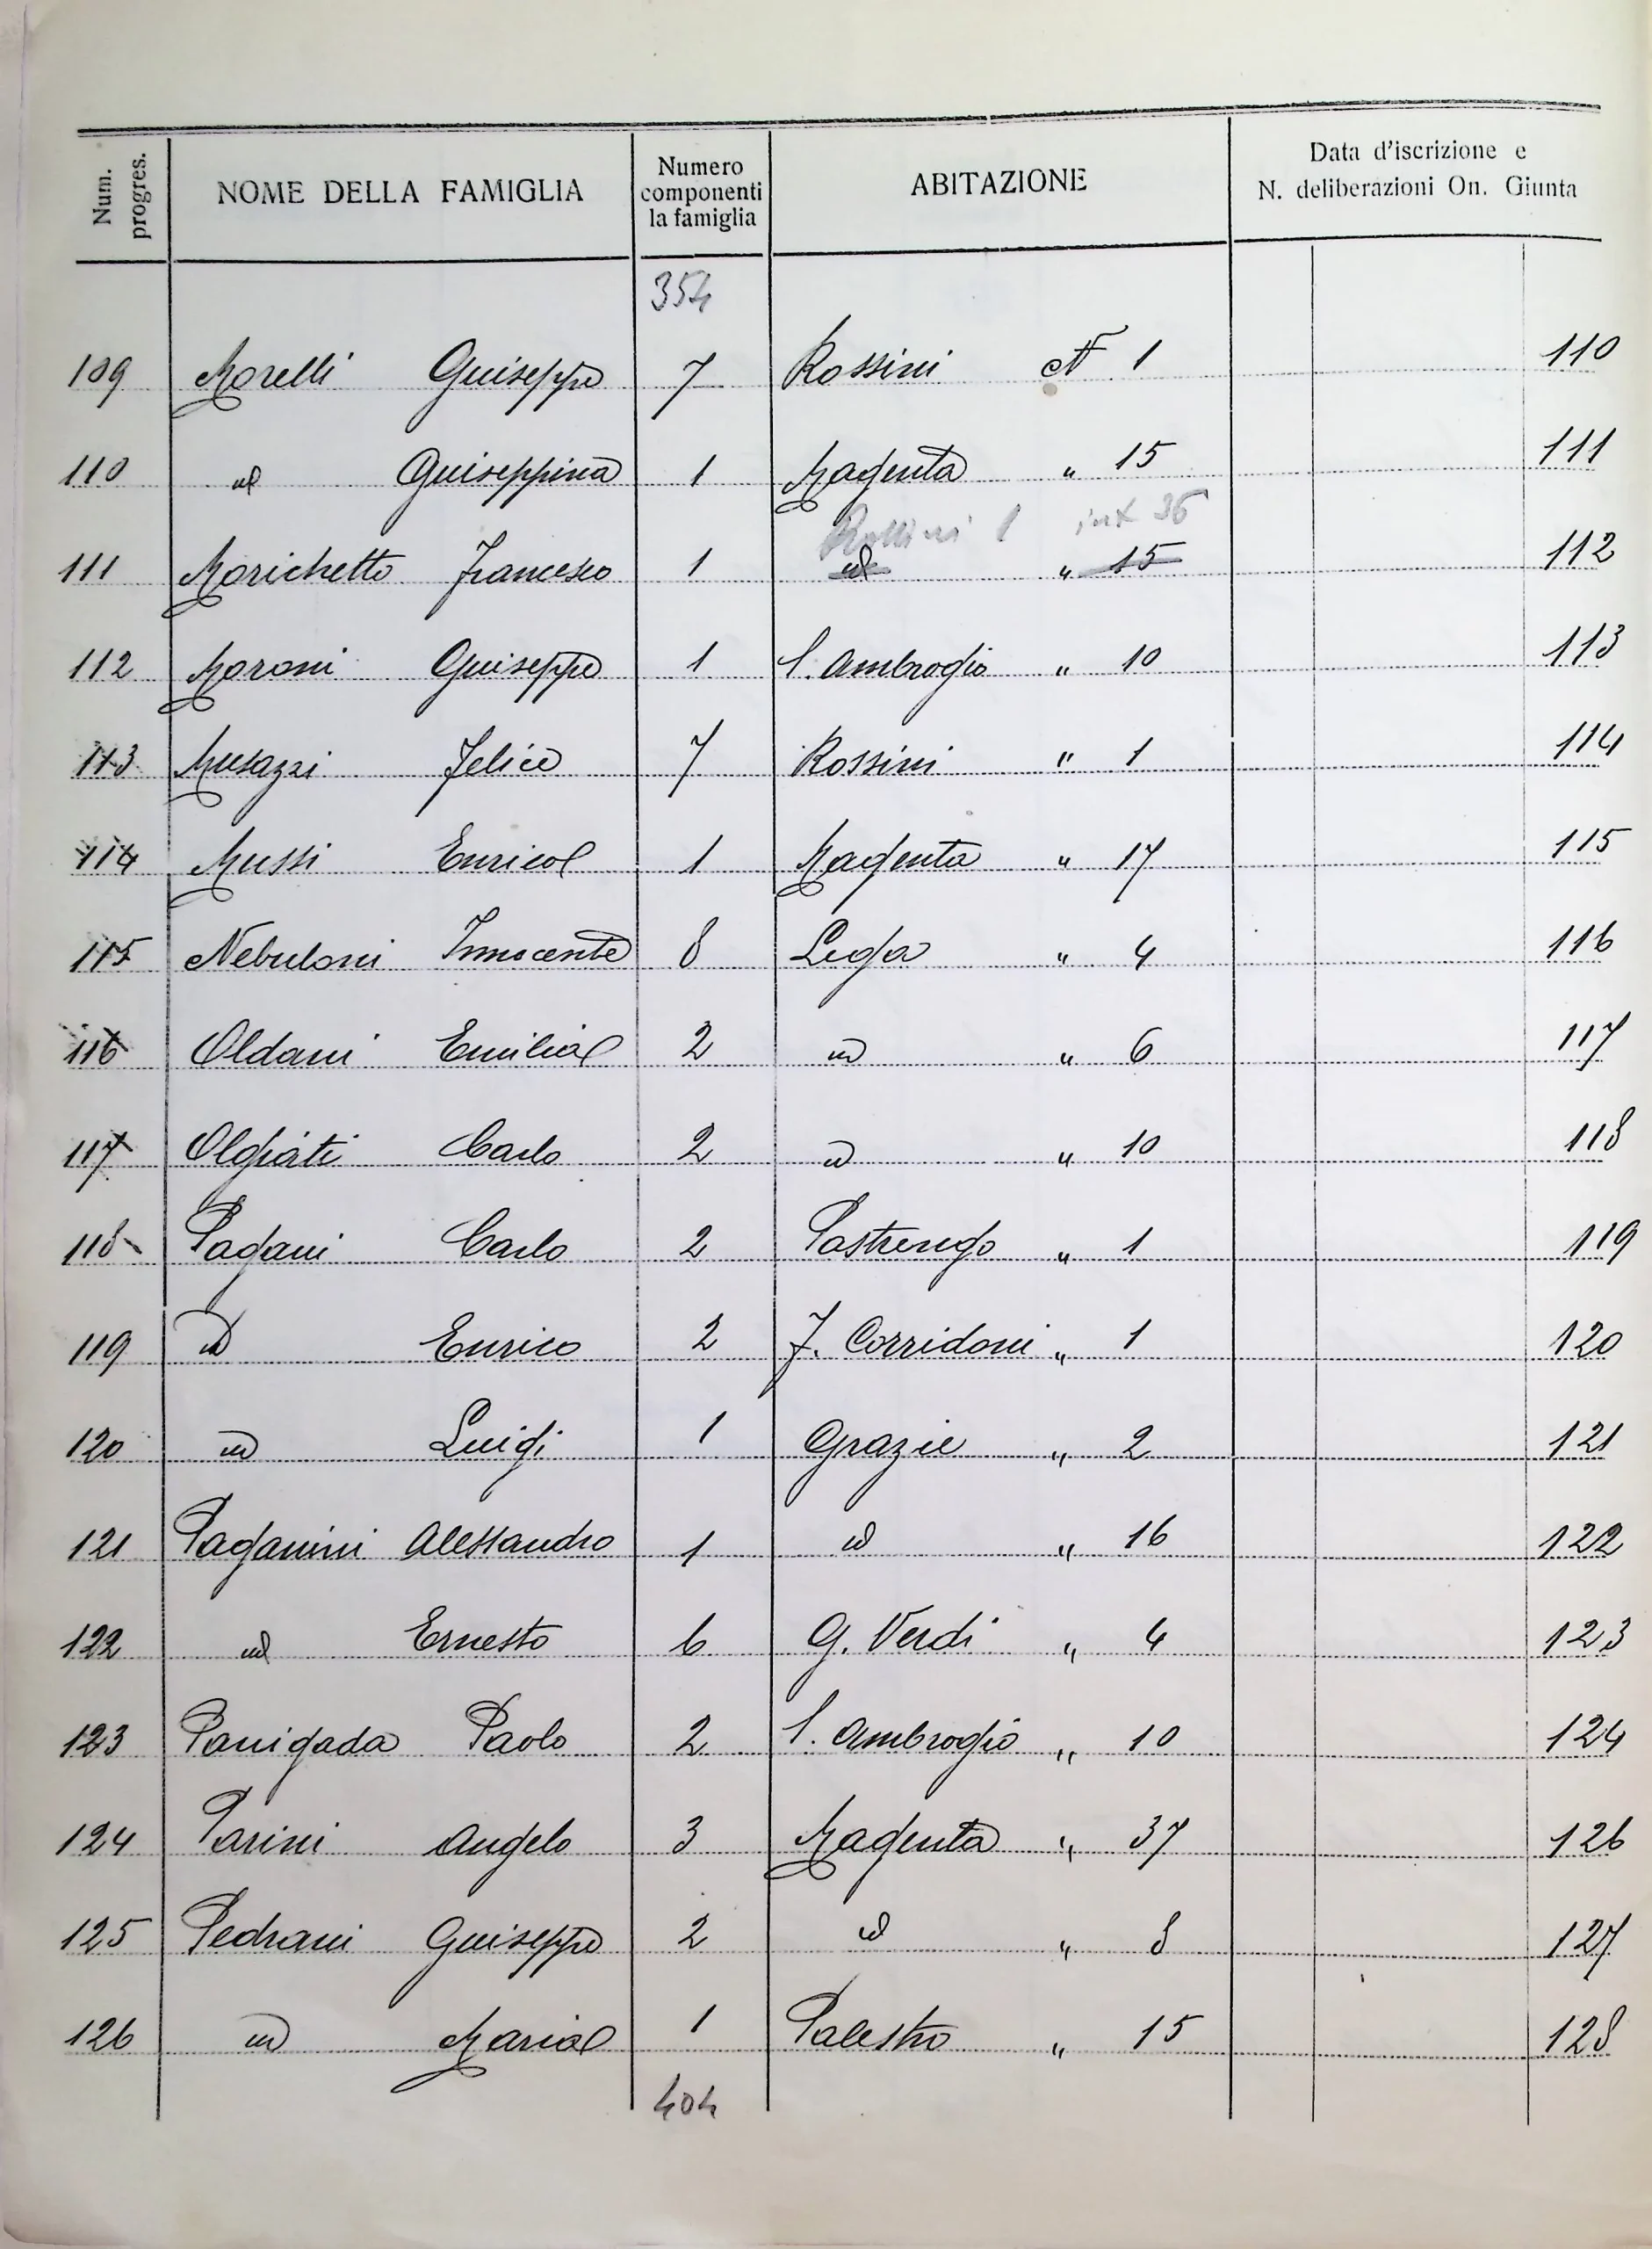 Num. progres. NOME DELLA FAMIGLIA Numero componenti la famiglia ABITAZIONE Data d'iscrizione e N. deliberazioni On. Giunta
354
109 Morelli Giuseppe 7 Rossini N 1 110
110 id Giuseppina 1 Magenta " 15 111
Rossini 1 int 36
111 Morichetto Francesco 1 id " 15 112
112 Moroni Giuseppe 1 S. Ambrogio " 10 113
113 Musazzi Felice 7 Rossini " 1 114
114 Mussi Enrica 1 Magenta " 17 115
115 Nebuloni Innocente 8 Lega " 4 116
116 Oldani Emilia 2 id " 6 117
117 Olgiati Carlo 2 id " 10 118
118 Pagani Carlo 2 Pastrengo " 1 119
119 id Enrico 2 F. Corridoni " 1 120
120 id Luigi 1 Grazie " 2 121
121 Paganini Alessandro 1 id " 16 122
122 id Ernesto 6 G. Verdi " 4 123
123 Panigada Paolo 2 S. Ambrogio " 10 124
124 Parini Angelo 3 Magenta " 37 126
125 Pedrani Giuseppe 2 id " 8 127
126 id Maria 1 Palestro " 15 128
404